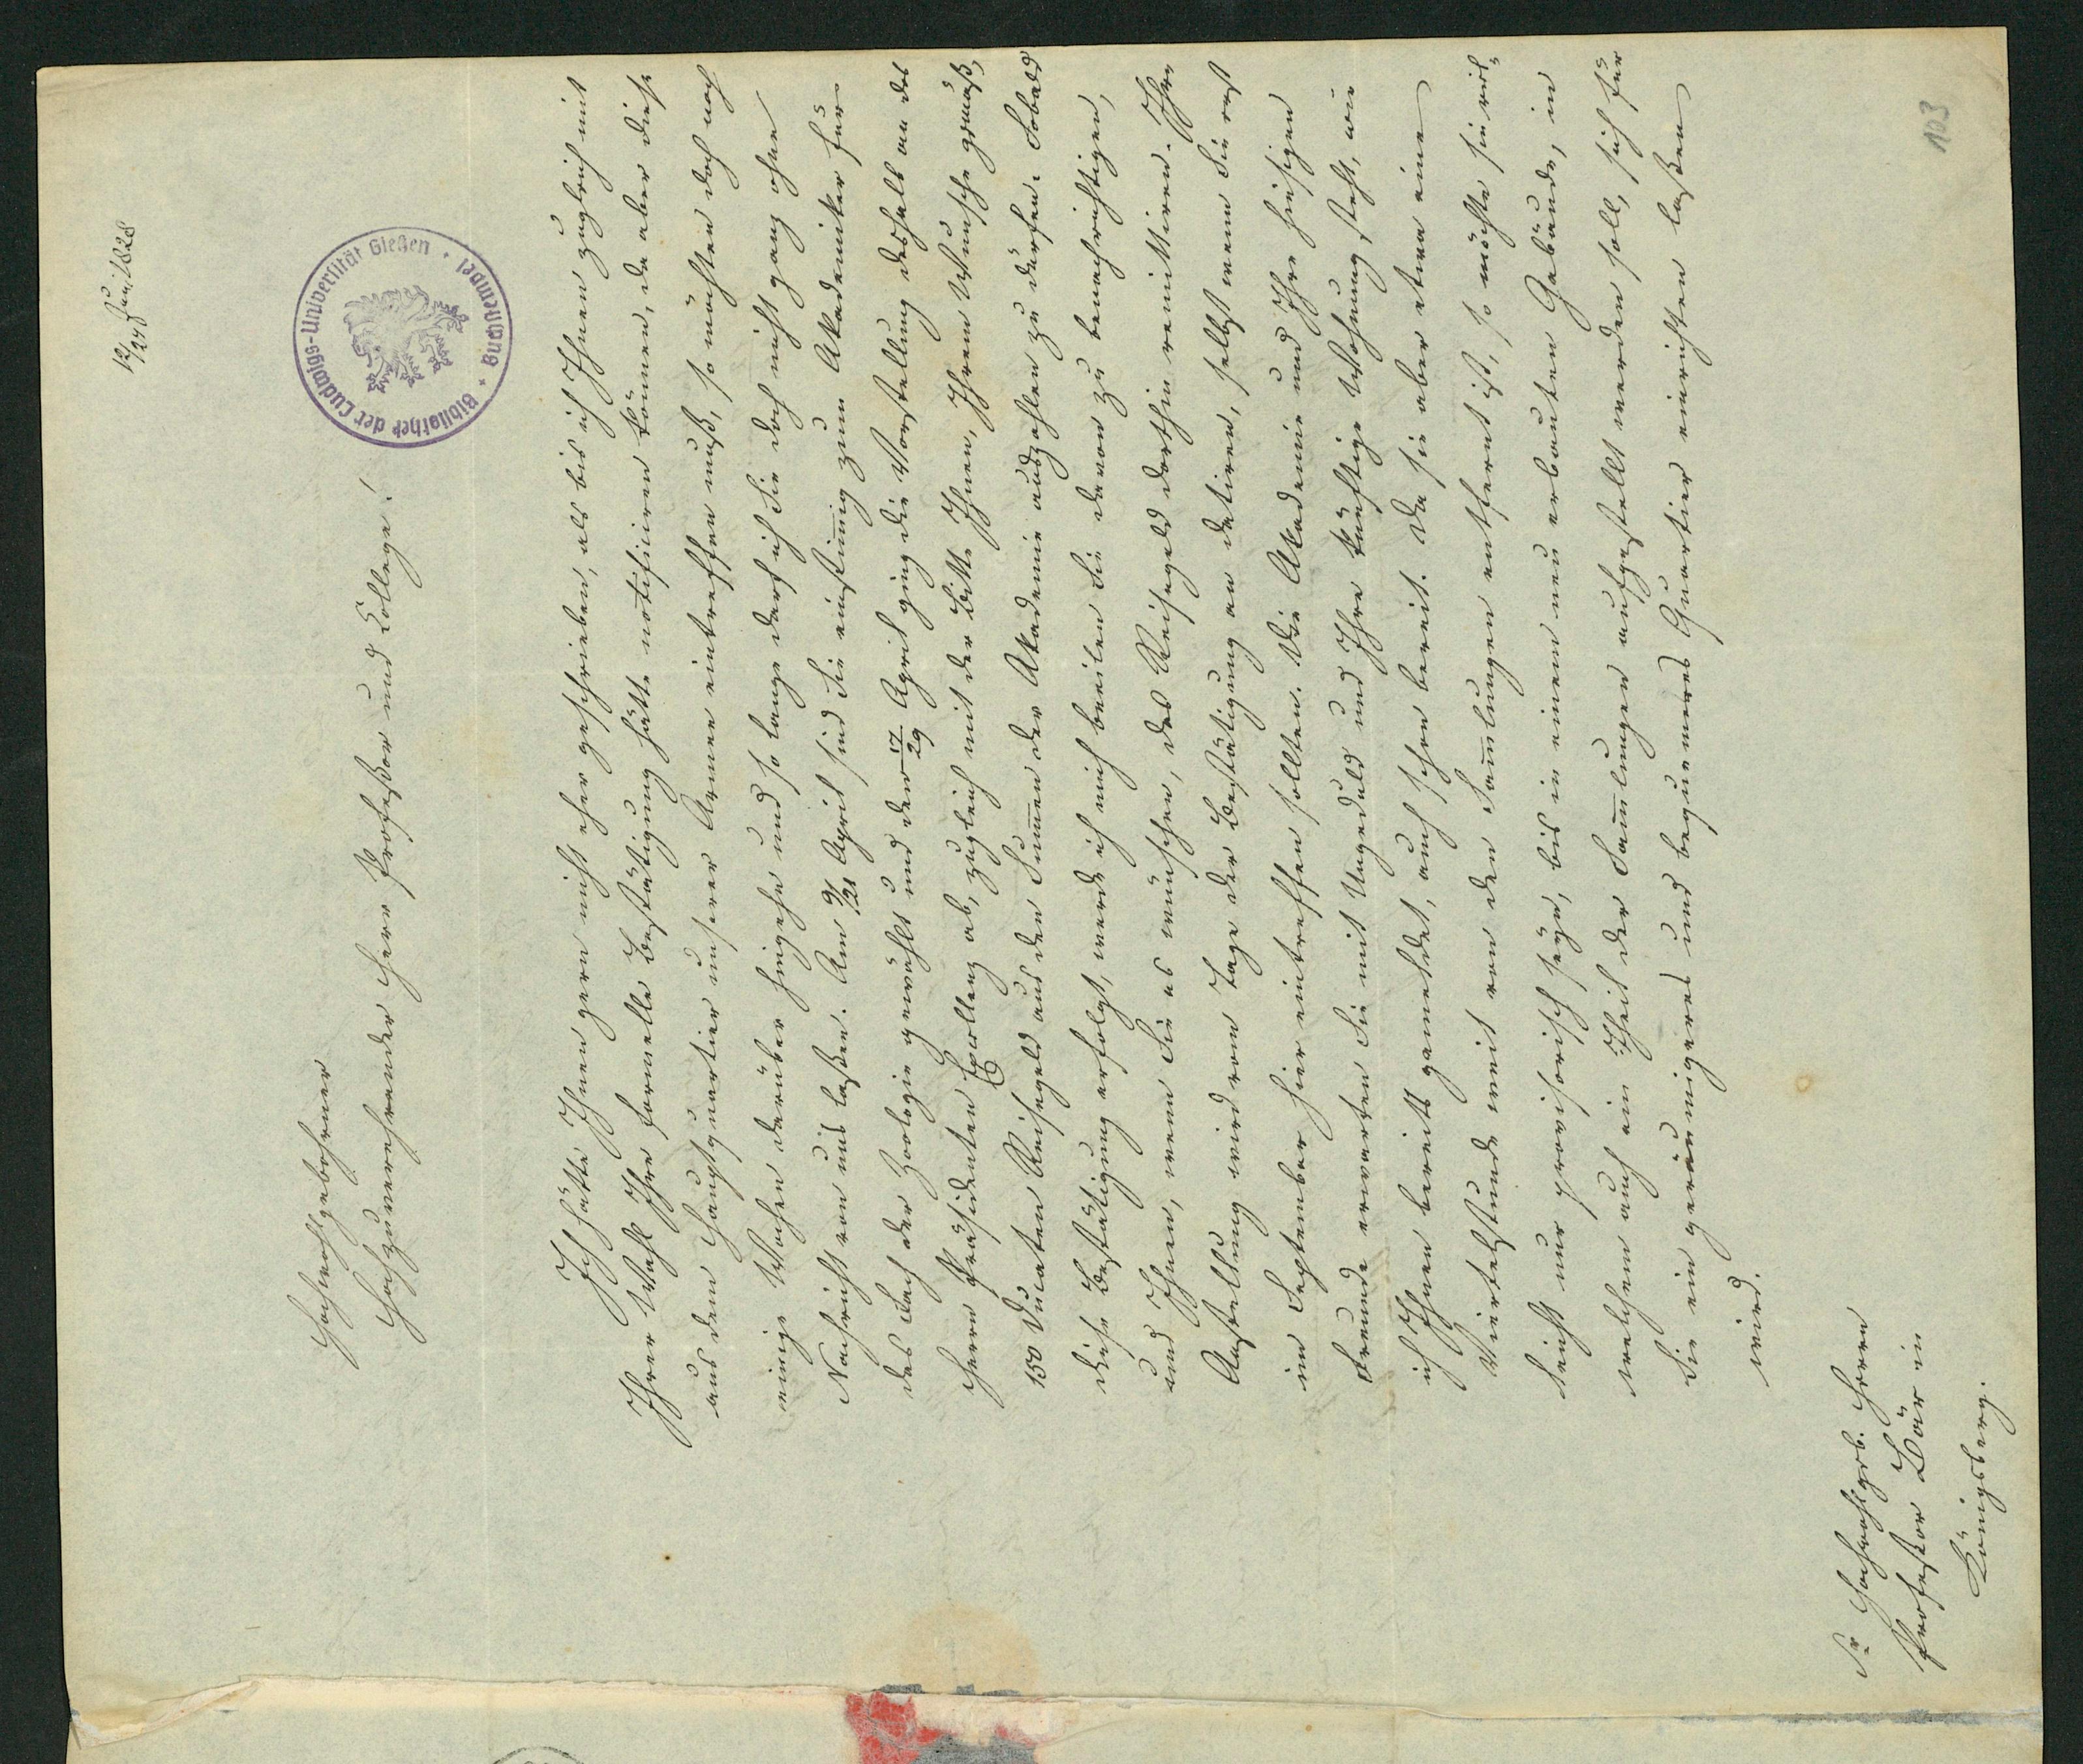 12/24 Juni 1828
Bibliothek der Ludwigs-Universität Gießen · Buchnerei
Hochwohlgebohrner
Hochzuverehrender Herr Profeßor und College!
Ich hätte Ihnen gern nicht eher geschrieben, als bis ich Ihnen zugleich mit
Ihrer Wahl Ihre formelle Bestätigung hätte notificiren können, da aber diese
aus dem Hauptquartier unserer Armee eintreffen muß, so möchten doch noch
einige Wochen darüber hingehn und so lange darf ich Sie doch nicht ganz ohne
Nachricht von uns laßen. Am 9/21 April sind Sie einstim̄ig zum Akademiker für
das Fach der Zoologie gewählt und den 17/29 April ging die Vorstellung deshalb an des
Herrn Präsidenten Excellenz ab, zugleich mit der Bitte Ihnen, Ihrem Wunsche gemäß,
150 Ducaten Reisegeld aus den Sum̄en der Akademie auszahlen zu dürfen. Sobald
diese Bestätigung erfolgt, werde ich mich beeilen Sie davon zu benachrichtigen,
und Ihnen, wenn Sie es wünschen, das Reisegeld dorthin remittiren. Ihre
Anstellung wird vom Tage der Bestätigung an datiren, selbst wenn Sie erst
im September hier eintreffen sollten. Die Akademie und Ihre hiesigen
Freunde erwarten Sie mit Ungeduld und Ihre künftige Wohnung steht, wie
ich Ihnen bereits gemeldet, auch schon bereit. Da sie aber etwa eine
Viertelstunde weit von den Sam̄lungen entfernt ist, so möchte sie viel=
leicht nur provisorisch seyn, bis in einem neu erbauten Gebäude, in
welchem auch ein Theil der Sam̄lungen aufgestellt werden soll, sich für
Sie ein geräumigeres und bequemeres Quartier einrichten laßen
wird.
Sr Hochwohlgeb. Herrn
Profeßor Bär in
Königsberg.
103